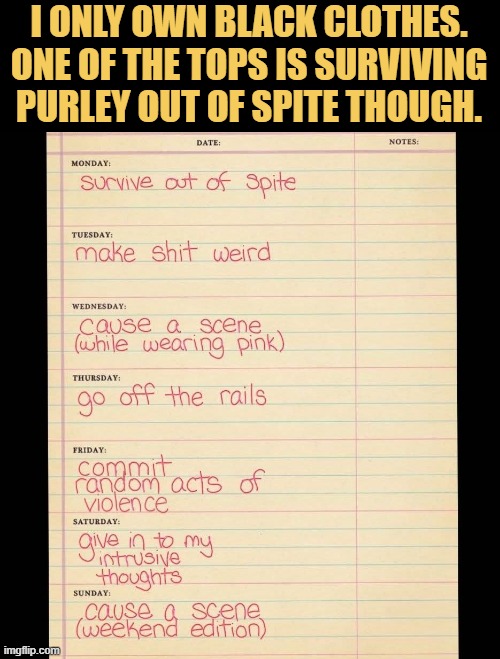 I ONLY OWN BLACK CLOTHES.
ONE OF THE TOPS IS SURVIVING
PURLEY OUT OF SPITE THOUGH.
DATE:
NOTES:
MONDAY:
survive out of spite
TUESDAY:
make shit weird
WEDNESDAY:
cause a scene
(while wearing pink)
THURSDAY:
go off the rails
FRIDAY:
commit
random acts of
violence
SATURDAY:
give in to my
intrusive
thoughts
SUNDAY:
cause a scene
(weekend edition)
imgflip.com